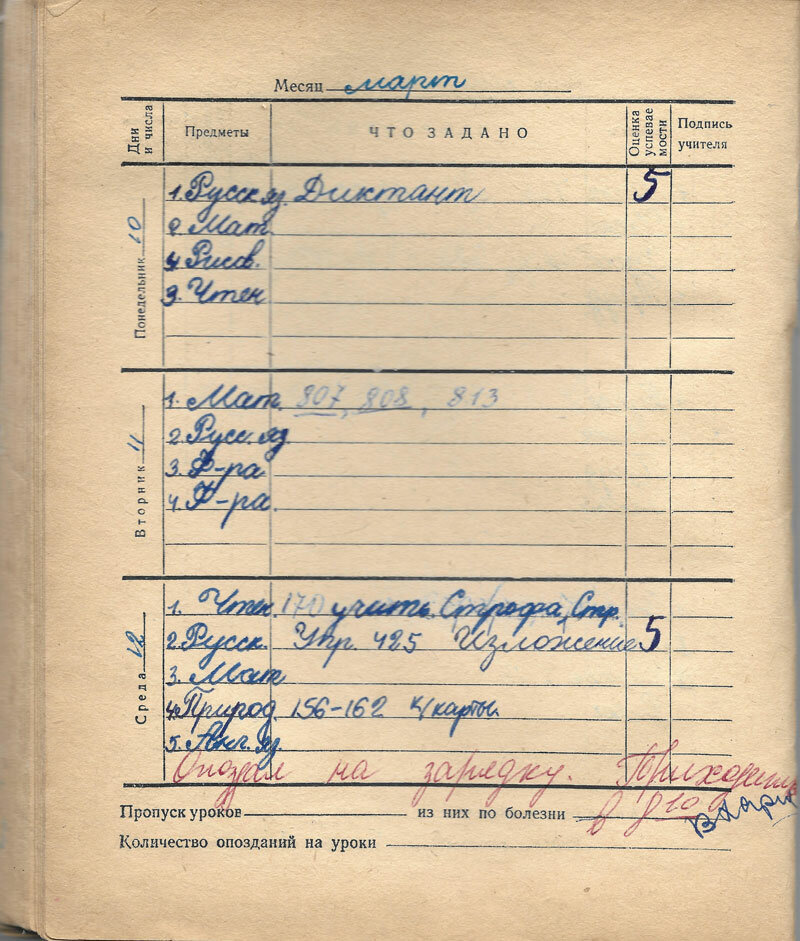 Месяц март
Дни и числа Предметы ЧТО ЗАДАНО Оценка успевае мости Подпись учителя
Понедельник 10
1. Русск яз. Диктант 5
2 Мат
4 Рисов.
3. Чтен
Вторник 11
1. Мат. 807, 808, 813
2. Русс. яз
3. Ф-ра
4. Ф-ра.
Среда 12
1. Чтен. 170 учить. Строфа, Стр.
2. Русск. Упр. 425 Изложение 5
3. Мат
4. Природ. 156-162 к/карты.
5. Анг. яз.
Опоздал на зарядку. Приходить
в 8 10
Пропуск уроков из них по болезни
Количество опозданий на уроки